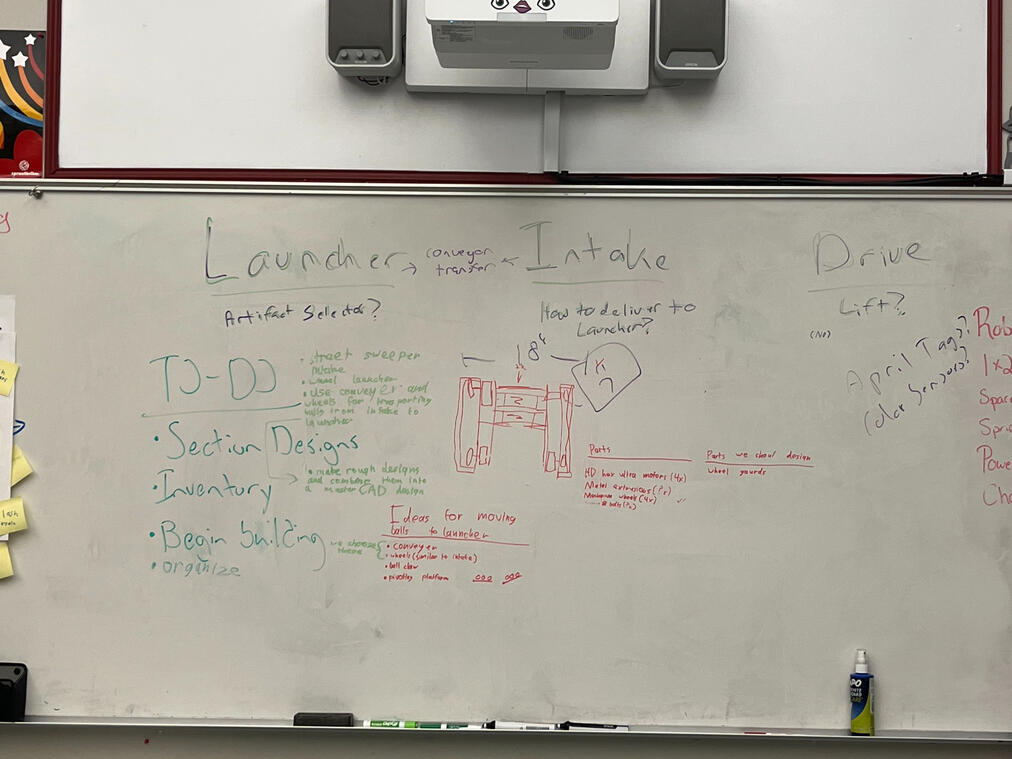 Launcher → conveyor transfer ← Intake
Drive
Artifact Selector?
How to deliver to
Launcher?
Lift?
(No)
April Tags??
Color Sensors?
TO-DO
• street sweeper
intake
• wheel launcher
• Use conveyer and
wheels for transporting
balls from intake to
launcher
• Section Designs
• make rough designs
and combine them into
a master CAD design
• Inventory
• Begin building
we choose
these
• organize
18"
Ideas for moving
balls to launcher
• conveyer
• wheels (similar to intake)
• ball claw
• pivoting platform
Parts
HD hex ultra motors (4x)
Metal extrusions (?x)
wheels (4x)
Parts we shoul design
wheel gaurds
Rob
1x2
Spac
Powe
EXPO
EPSON